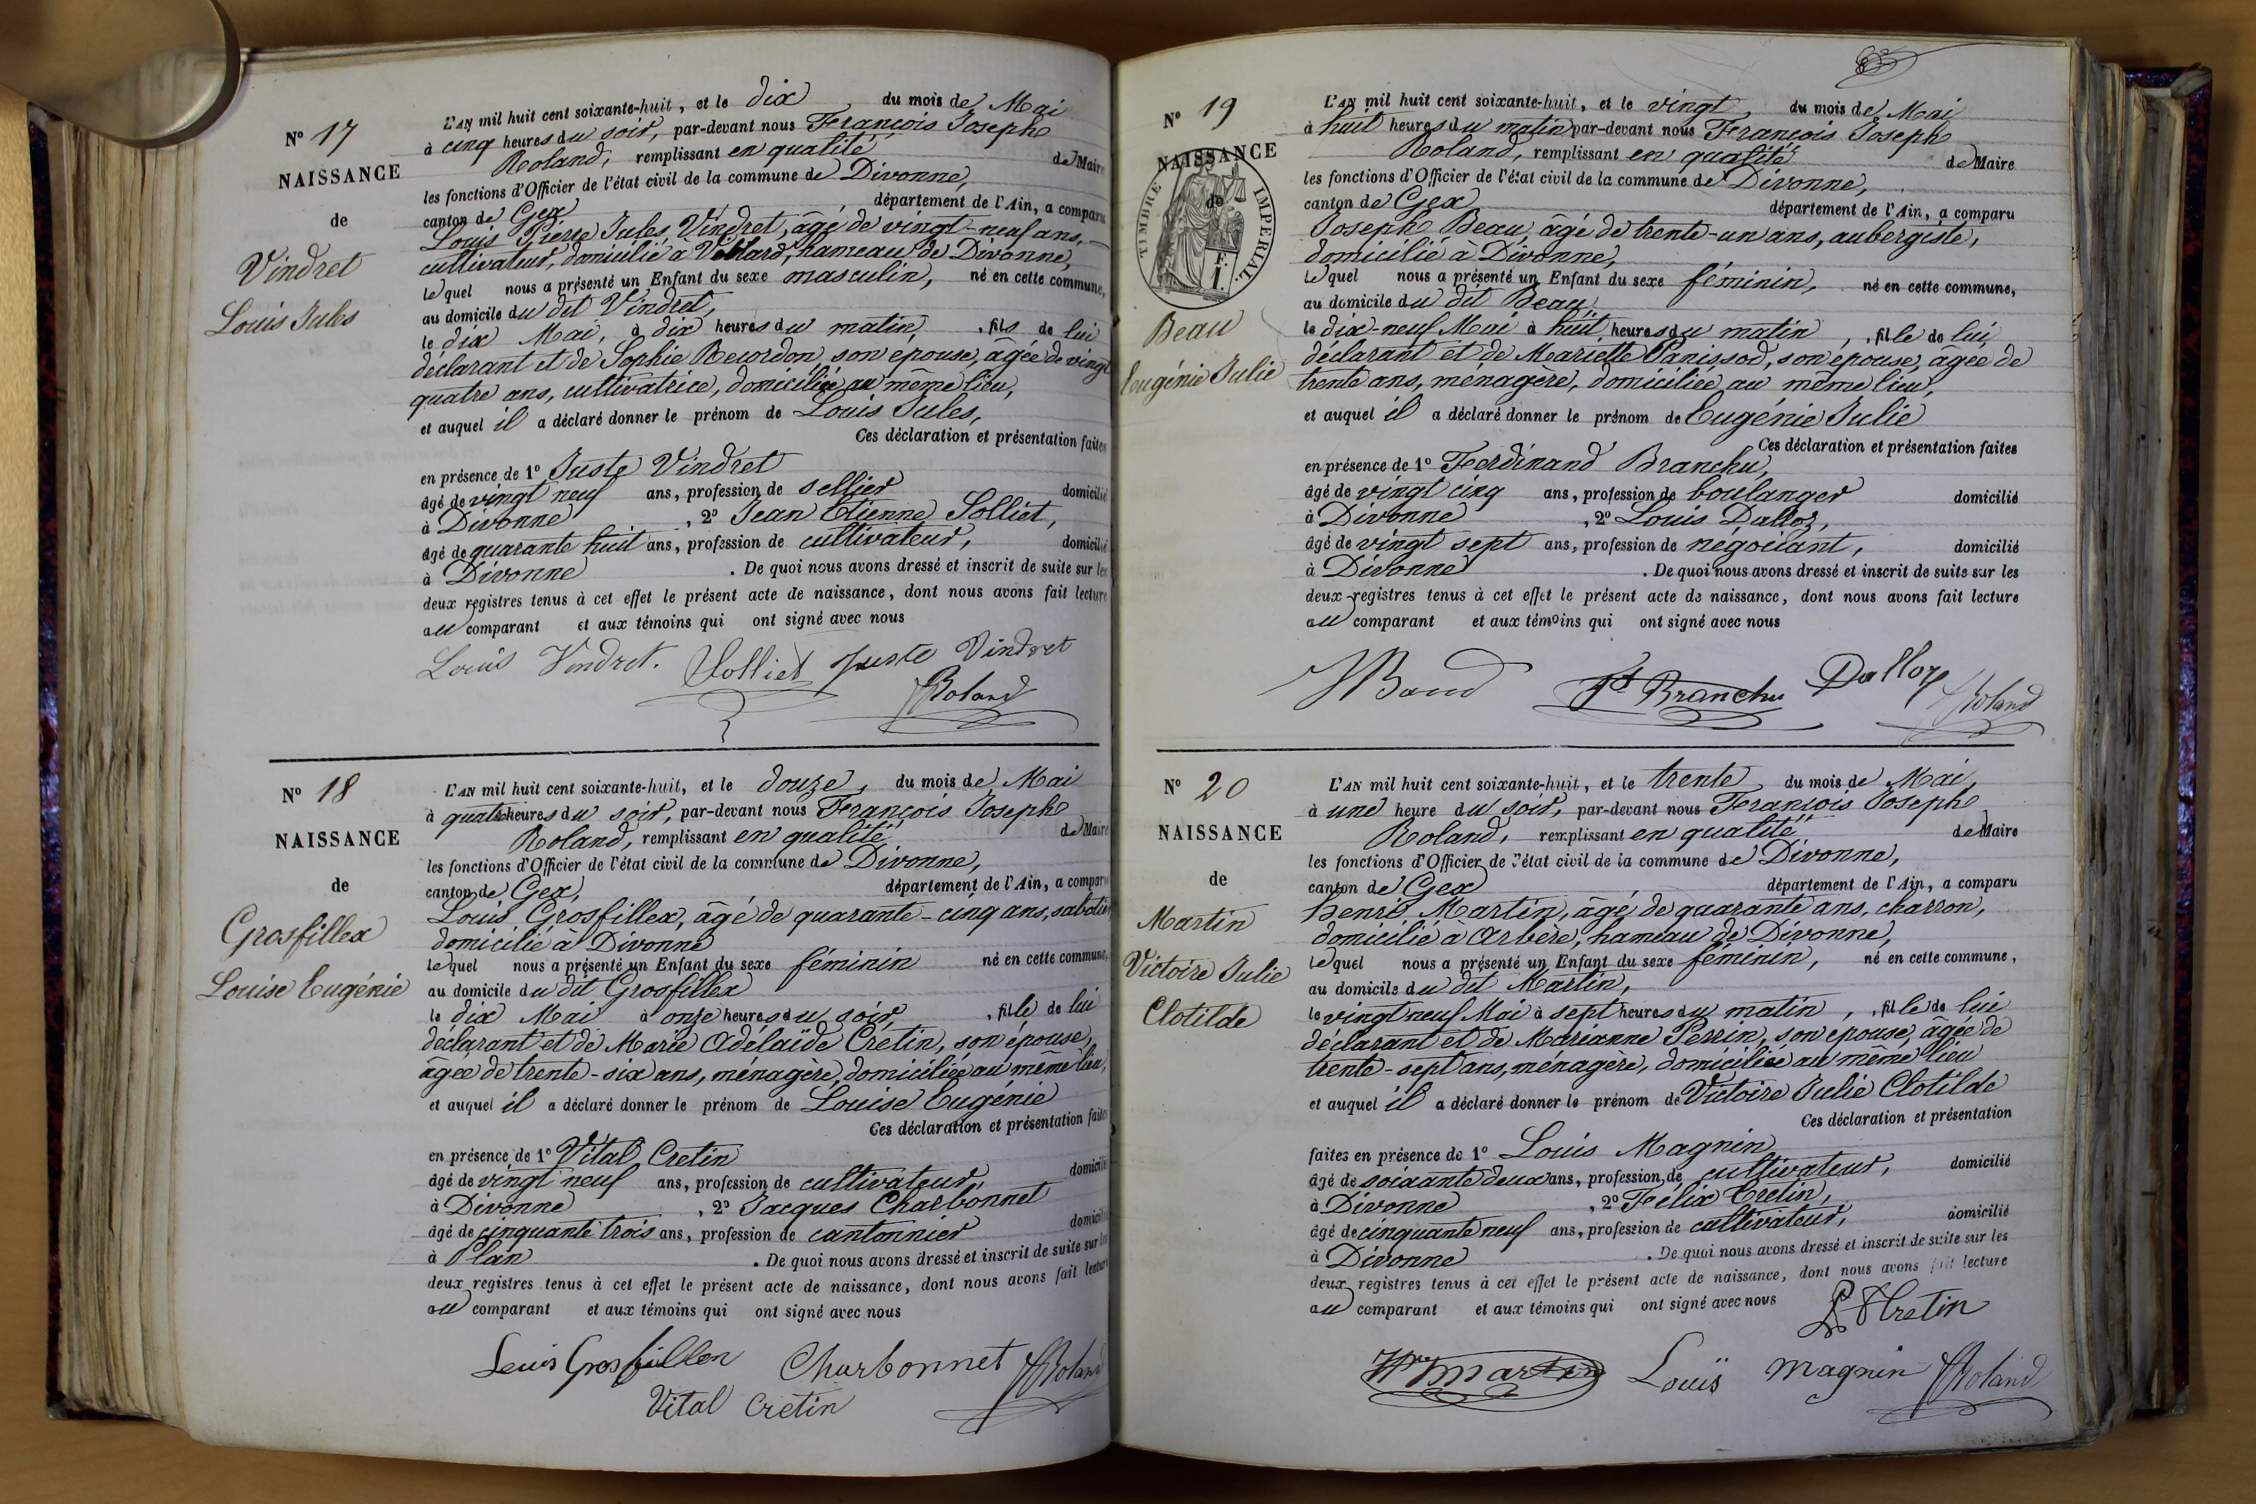 N° 17
NAISSANCE
de
Vindret
Louis Jules
L'AN mil huit cent soixante-huit, et le dix du mois de Mai
à cinq heures du soir, par-devant nous François Joseph
Roland, remplissant en qualité de Maire
les fonctions d'Officier de l'état civil de la commune de Divonne,
canton de Gex département de l'Ain, a comparu
Louis Pierre Jules Vindret, âgé de vingt-neuf ans,
cultivateur, domicilié à Villard, hameau de Divonne,
lequel nous a présenté un Enfant du sexe masculin, né en cette commune,
au domicile du dit Vindret,
le dix Mai, à dix heures du matin, fils de lui
déclarant et de Sophie Recordon, son épouse, âgée de vingt
quatre ans, cultivatrice, domiciliée au même lieu,
et auquel il a déclaré donner le prénom de Louis Jules,
Ces déclaration et présentation faites
en présence de 1° Juste Vindret
âgé de vingt neuf ans, profession de sellier domicilié
à Divonne, 2° Jean Etienne Solliet,
âgé de quarante huit ans, profession de cultivateur, domicilié
à Divonne. De quoi nous avons dressé et inscrit de suite sur les
deux registres tenus à cet effet le présent acte de naissance, dont nous avons fait lecture
au comparant et aux témoins qui ont signé avec nous
Louis Vindret. Solliet Juste Vindret
Roland
N° 18
NAISSANCE
de
Grosfillex
Louise Eugénie
L'AN mil huit cent soixante-huit, et le douze, du mois de Mai
à quatre heures du soir, par-devant nous François Joseph
Roland, remplissant en qualité de Maire
les fonctions d'Officier de l'état civil de la commune de Divonne,
canton de Gex, département de l'Ain, a comparu
Louis Grosfillex, âgé de quarante-cinq ans, sabotier
domicilié à Divonne
lequel nous a présenté un Enfant du sexe féminin né en cette commune,
au domicile du dit Grosfillex
le dix Mai à onze heures du soir, fille de lui
déclarant et de Marie Adélaïde Crétin, son épouse,
âgée de trente-six ans, ménagère, domiciliée au même lieu,
et auquel il a déclaré donner le prénom de Louise Eugénie
Ces déclaration et présentation faites
en présence de 1° Vital Cretin
âgé de vingt neuf ans, profession de cultivateur, domicilié
à Divonne, 2° Jacques Charbonnet
âgé de cinquante trois ans, profession de cantonnier domicilié
à Plan. De quoi nous avons dressé et inscrit de suite sur les
deux registres tenus à cet effet le présent acte de naissance, dont nous avons fait lecture
au comparant et aux témoins qui ont signé avec nous
Louis Grosfillex Charbonnet Roland
Vital Cretin
N° 19
NAISSANCE
de
TIMBRE IMPERIAL
1 F.
Beau
Eugénie Julie
L'AN mil huit cent soixante-huit, et le vingt, du mois de Mai
à huit heures du matin par-devant nous François Joseph
Roland, remplissant en qualité de Maire
les fonctions d'Officier de l'état civil de la commune de Divonne,
canton de Gex département de l'Ain, a comparu
Joseph Beau, âgé de trente-un ans, aubergiste,
domicilié à Divonne,
lequel nous a présenté un Enfant du sexe féminin, né en cette commune,
au domicile du dit Beau,
le dix-neuf Mai à huit heures du matin, fille de lui,
déclarant et de Mariette Panissod, son épouse, âgée de
trente ans, ménagère, domiciliée au même lieu,
et auquel il a déclaré donner le prénom de Eugénie Julie
Ces déclaration et présentation faites
en présence de 1° Ferdinand Branchu,
âgé de vingt cinq ans, profession de boulanger domicilié
à Divonne, 2° Louis Dalloz,
âgé de vingt sept ans, profession de négociant, domicilié
à Divonne. De quoi nous avons dressé et inscrit de suite sur les
deux registres tenus à cet effet le présent acte de naissance, dont nous avons fait lecture
au comparant et aux témoins qui ont signé avec nous
Fd Branchu Dalloz Roland
N° 20
NAISSANCE
de
Martin
Victoire Julie
Clotilde
L'AN mil huit cent soixante-huit, et le trente du mois de Mai,
à une heure du soir, par-devant nous François Joseph
Roland, remplissant en qualité de Maire
les fonctions d'Officier de l'état civil de la commune de Divonne,
canton de Gex département de l'Ain, a comparu
Henri Martin, âgé de quarante ans, charron,
domicilié à Arbère, hameau de Divonne,
lequel nous a présenté un Enfant du sexe féminin, né en cette commune,
au domicile du dit Martin,
le vingt neuf Mai à sept heures du matin, fille de lui
déclarant et de Marianne Perrin, son épouse, âgée de
trente-sept ans, ménagère, domiciliée au même lieu
et auquel il a déclaré donner le prénom de Victoire Julie Clotilde
Ces déclaration et présentation
faites en présence de 1° Louis Magnin
âgé de soixante deux ans, profession de cultivateur, domicilié
à Divonne, 2° Félix Cretin,
âgé de cinquante neuf ans, profession de cultivateur, domicilié
à Divonne. De quoi nous avons dressé et inscrit de suite sur les
deux registres tenus à cet effet le présent acte de naissance, dont nous avons fait lecture
au comparant et aux témoins qui ont signé avec nous
Cretin
martin Louis magnin Roland